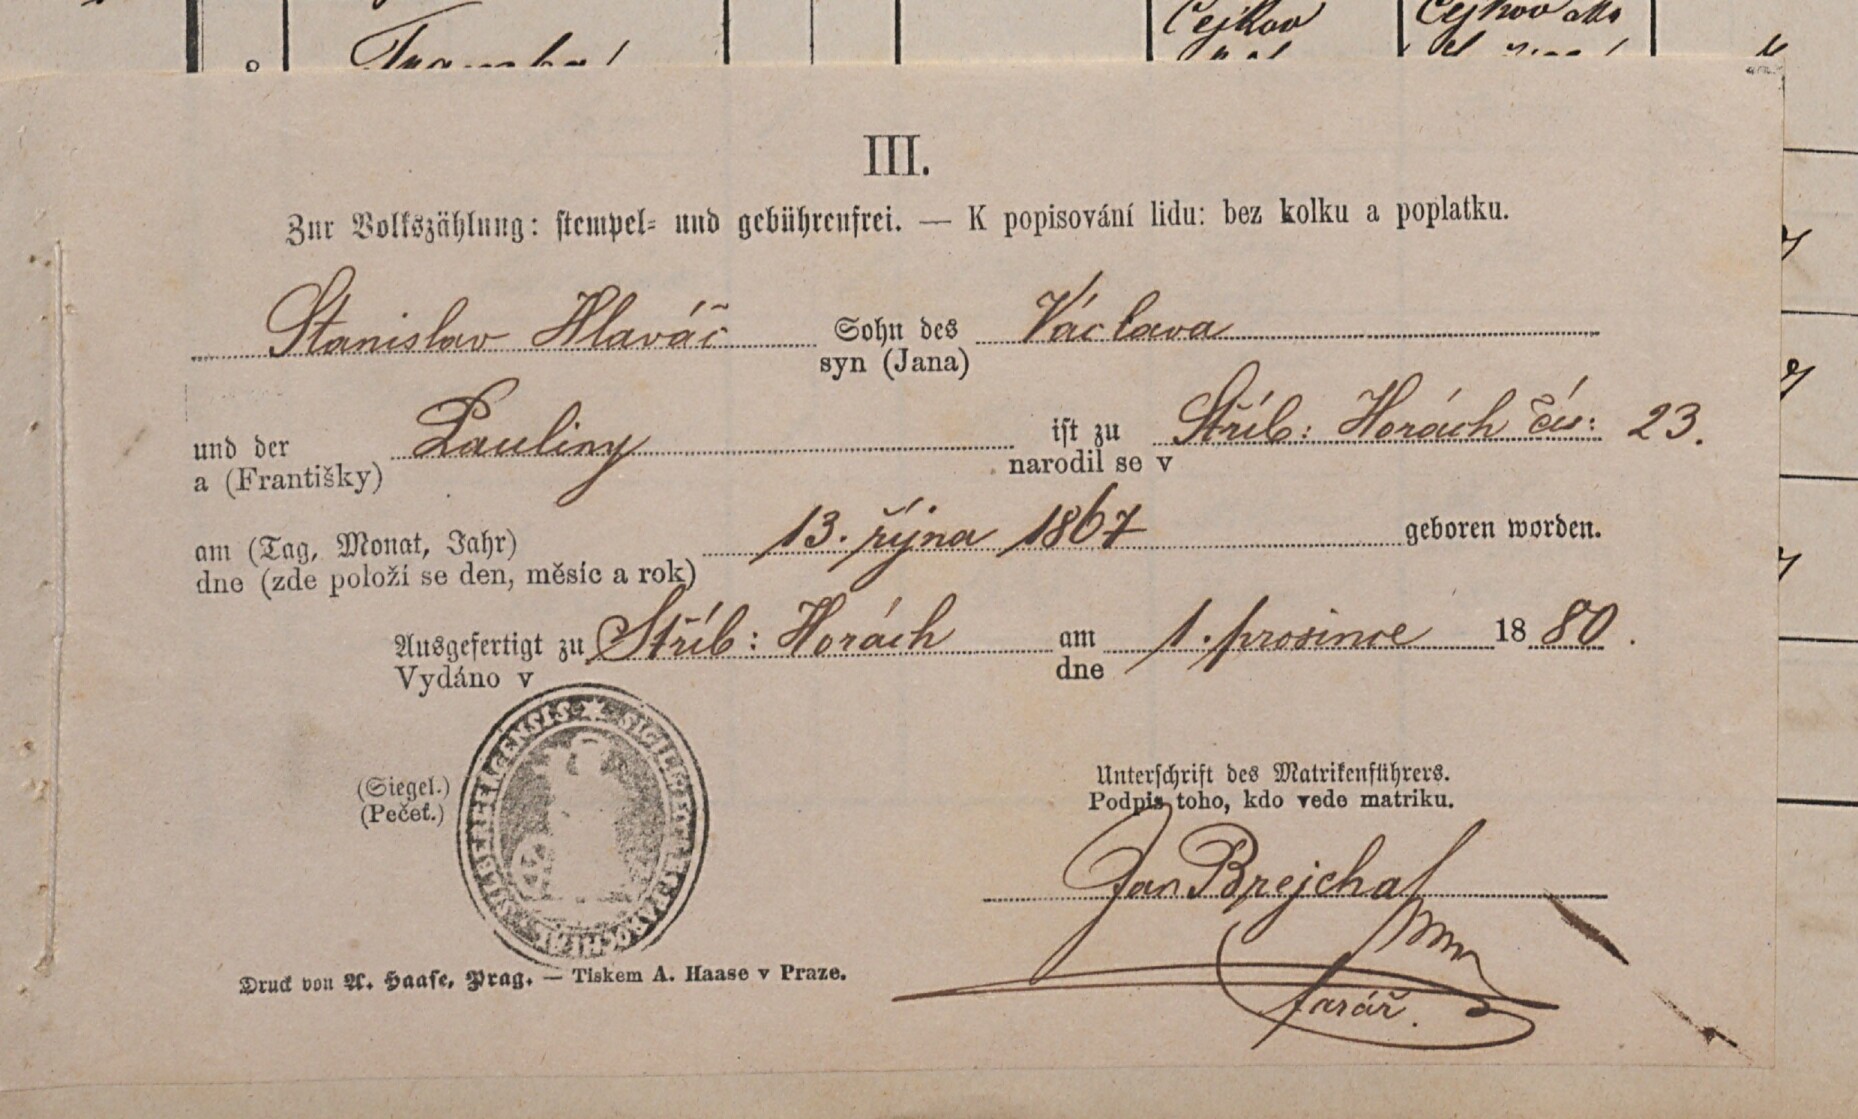 Cejkov
III.
Zur Volkszählung: stempel- und gebührenfrei. — K popisování lidu: bez kolku a poplatku.
Stanislav Hlaváč Sohn des Václava
syn (Jana)
und der Pauliny ist zu Stříb: Horách čís: 23.
a (Františky) narodil se v
am (Tag, Monat, Jahr) 13. října 1867 geboren worden.
dne (zde položí se den, měsíc a rok)
Ausgefertigt zu Stříb: Horách am 1. prosince 1880.
Vydáno v dne
(Siegel.)
(Pečeť.)
Unterschrift des Matrikenführers.
Podpis toho, kdo vede matriku.
Jan Brejcha
farář.
Druck von A. Haase, Prag. — Tiskem A. Haase v Praze.